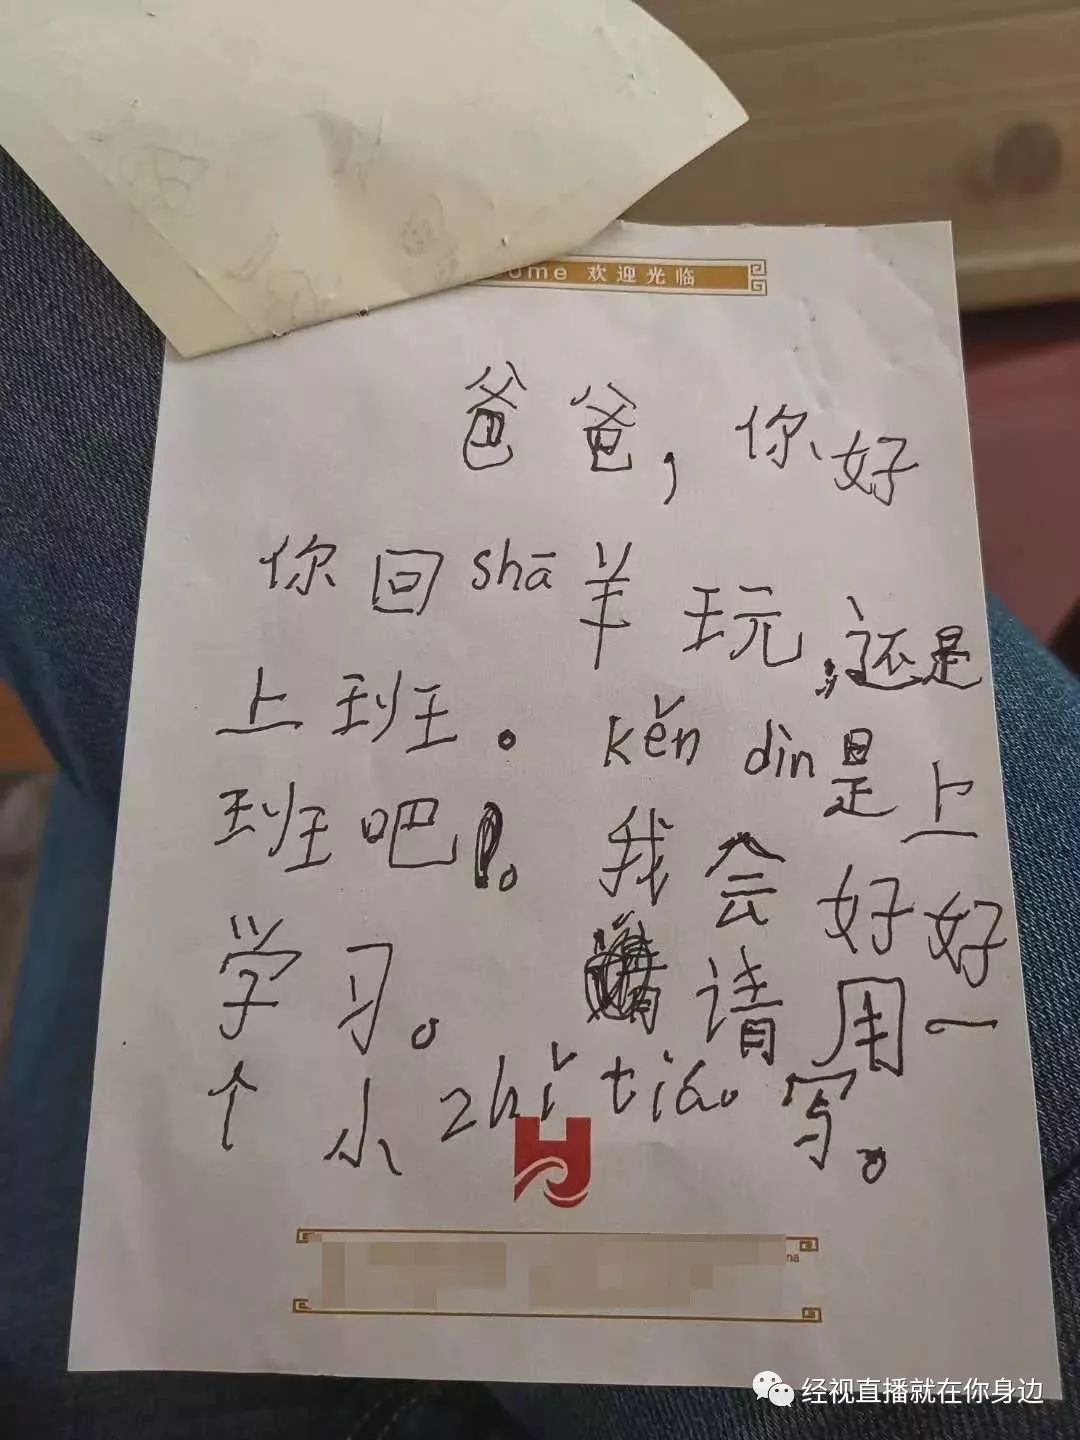 ome 欢迎光临
爸爸，你好
你回shā羊玩，还是
上班。kěn dìn是上
班吧。我会好好
学习。请用一
个小zhǐ tiáo写。
na
经视直播就在你身边